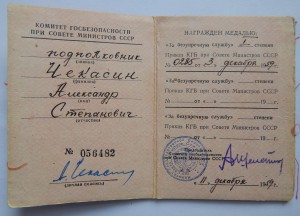 КОМИТЕТ ГОСБЕЗОПАСНОСТИ
ПРИ СОВЕТЕ МИНИСТРОВ СССР
подполковник
Чекасин
(фамилия)
Александр
(имя)
Степанович
(отчество)
№ 056482
НАГРАЖДЕН МЕДАЛЬЮ:
«За безупречную службу» I степени
Приказ КГБ при Совете Министров СССР
№ 0285 от «3» декабря 1959 г.
«За безупречную службу» степени
Приказ КГБ при Совете Министров СССР
№ от « » 19 г.
«За безупречную службу» степени
Приказ КГБ при Совете Министров СССР
№ от « » 19 г.
Председатель
Комитета госбезопасности
при Совете Министров СССР
11 декабря 1959 г.